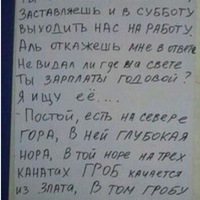 ЗАСТАВЛЯЕШЬ И В СУББОТУ
ВЫХОДИТЬ НАС НА РАБОТУ.
АЛЬ ОТКАЖЕШЬ МНЕ В ОТВЕТЕ
НЕ ВИДАЛ ЛИ ГДЕ НА СВЕТЕ
ТЫ ЗАРПЛАТЫ ГОДОВОЙ?
Я ИЩУ ЕЁ....
- ПОСТОЙ, ЕСТЬ НА СЕВЕРЕ
ГОРА, В НЕЙ ГЛУБОКАЯ
НОРА, В ТОЙ НОРЕ НА ТРЕХ
КАНАТАХ ГРОБ КАЧАЕТСЯ
ИЗ ЗЛАТА, В ТОМ ГРОБУ